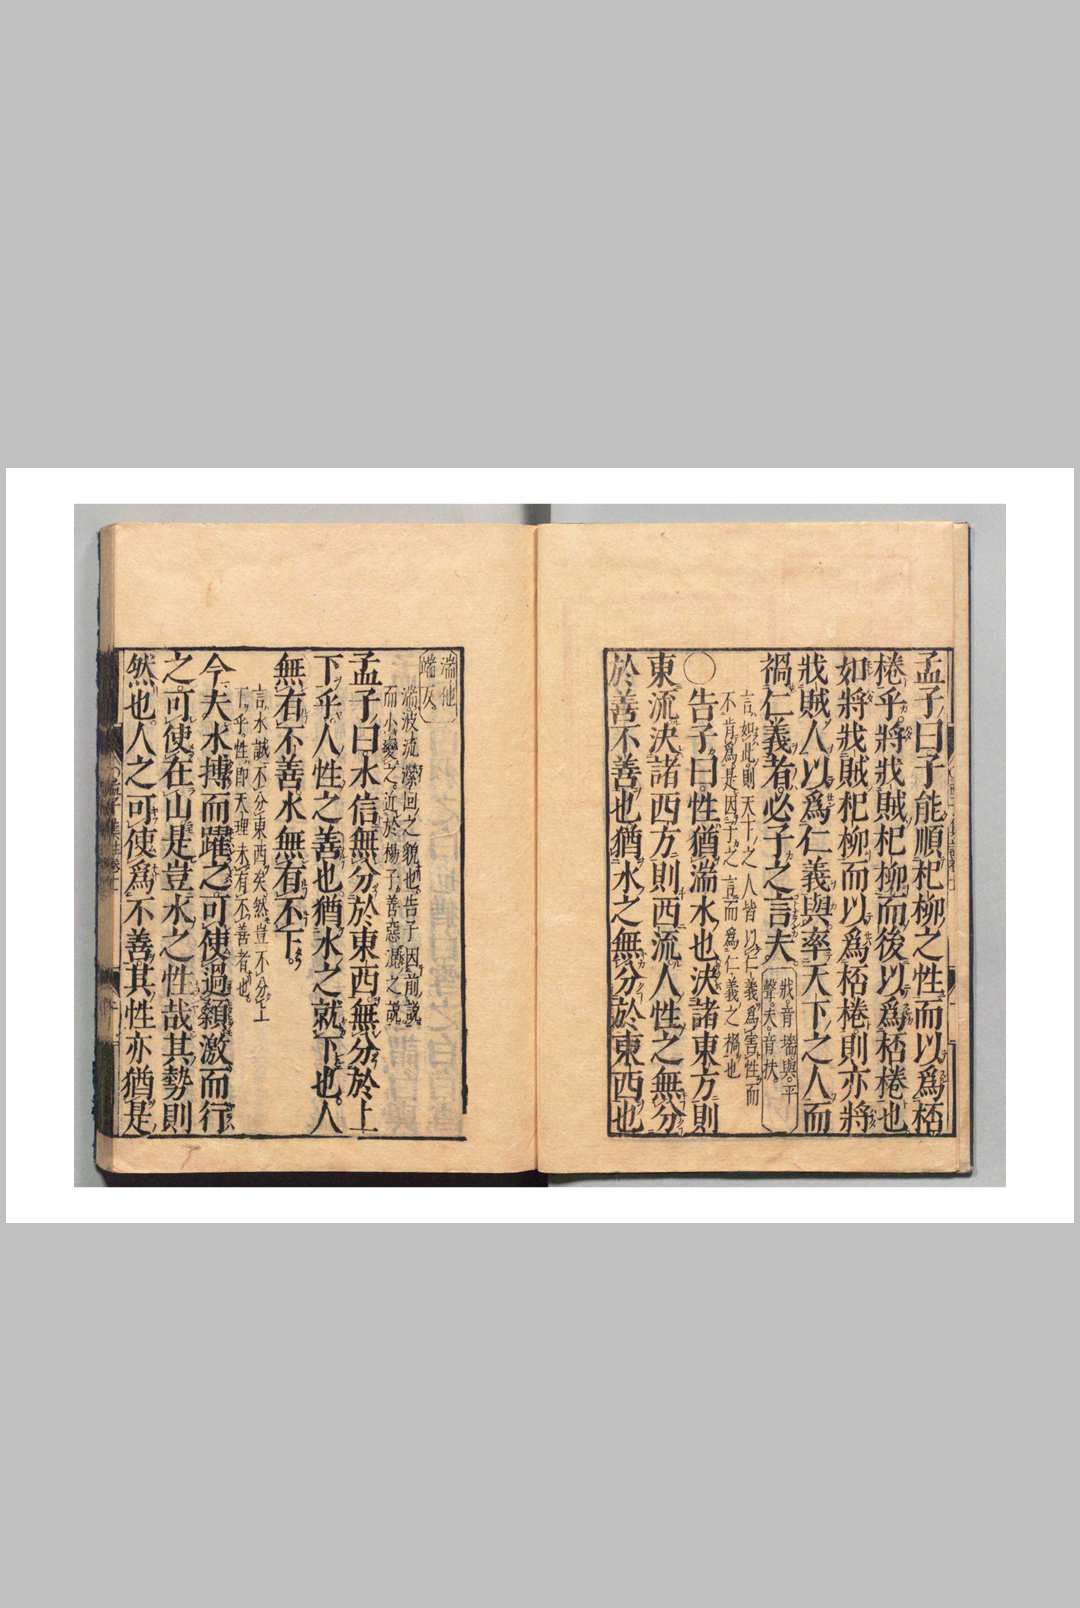 孟子曰子能順杞柳之性而以爲桮
棬乎將戕賊杞柳而後以爲桮棬也
如將戕賊杞柳而以爲桮棬則亦將
戕賊人以爲仁義與率天下之人而
禍仁義者必子之言夫
戕音墻與平
聲夫音扶
言如此則天下之人皆以仁義爲害性而
不肯爲是因子之言而爲仁義之禍也
○告子曰性猶湍水也決諸東方則
東流決諸西方則西流人性之無分
於善不善也猶水之無分於東西也
湍他
端反
湍波流瀠回之貌也告子因前說
而小變之近於楊子善惡混之說
孟子曰水信無分於東西無分於上
下乎人性之善也猶水之就下也人
無有不善水無有不下
言水誠不分東西矣然豈不分上
下乎性即天理未有不善者也
今夫水搏而躍之可使過顙激而行
之可使在山是豈水之性哉其勢則
然也人之可使爲不善其性亦猶是
孟子集註卷十